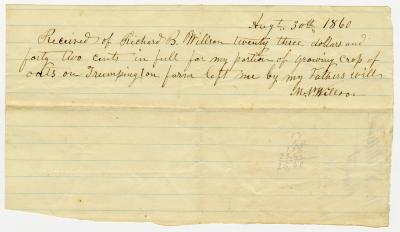 Augt. 30th 1860
Received of Richard B. Willson twenty three dollars and
forty two cents in full for my portion of growing crop of
oats on Trumpington farm left me by my Fathers will
Willson